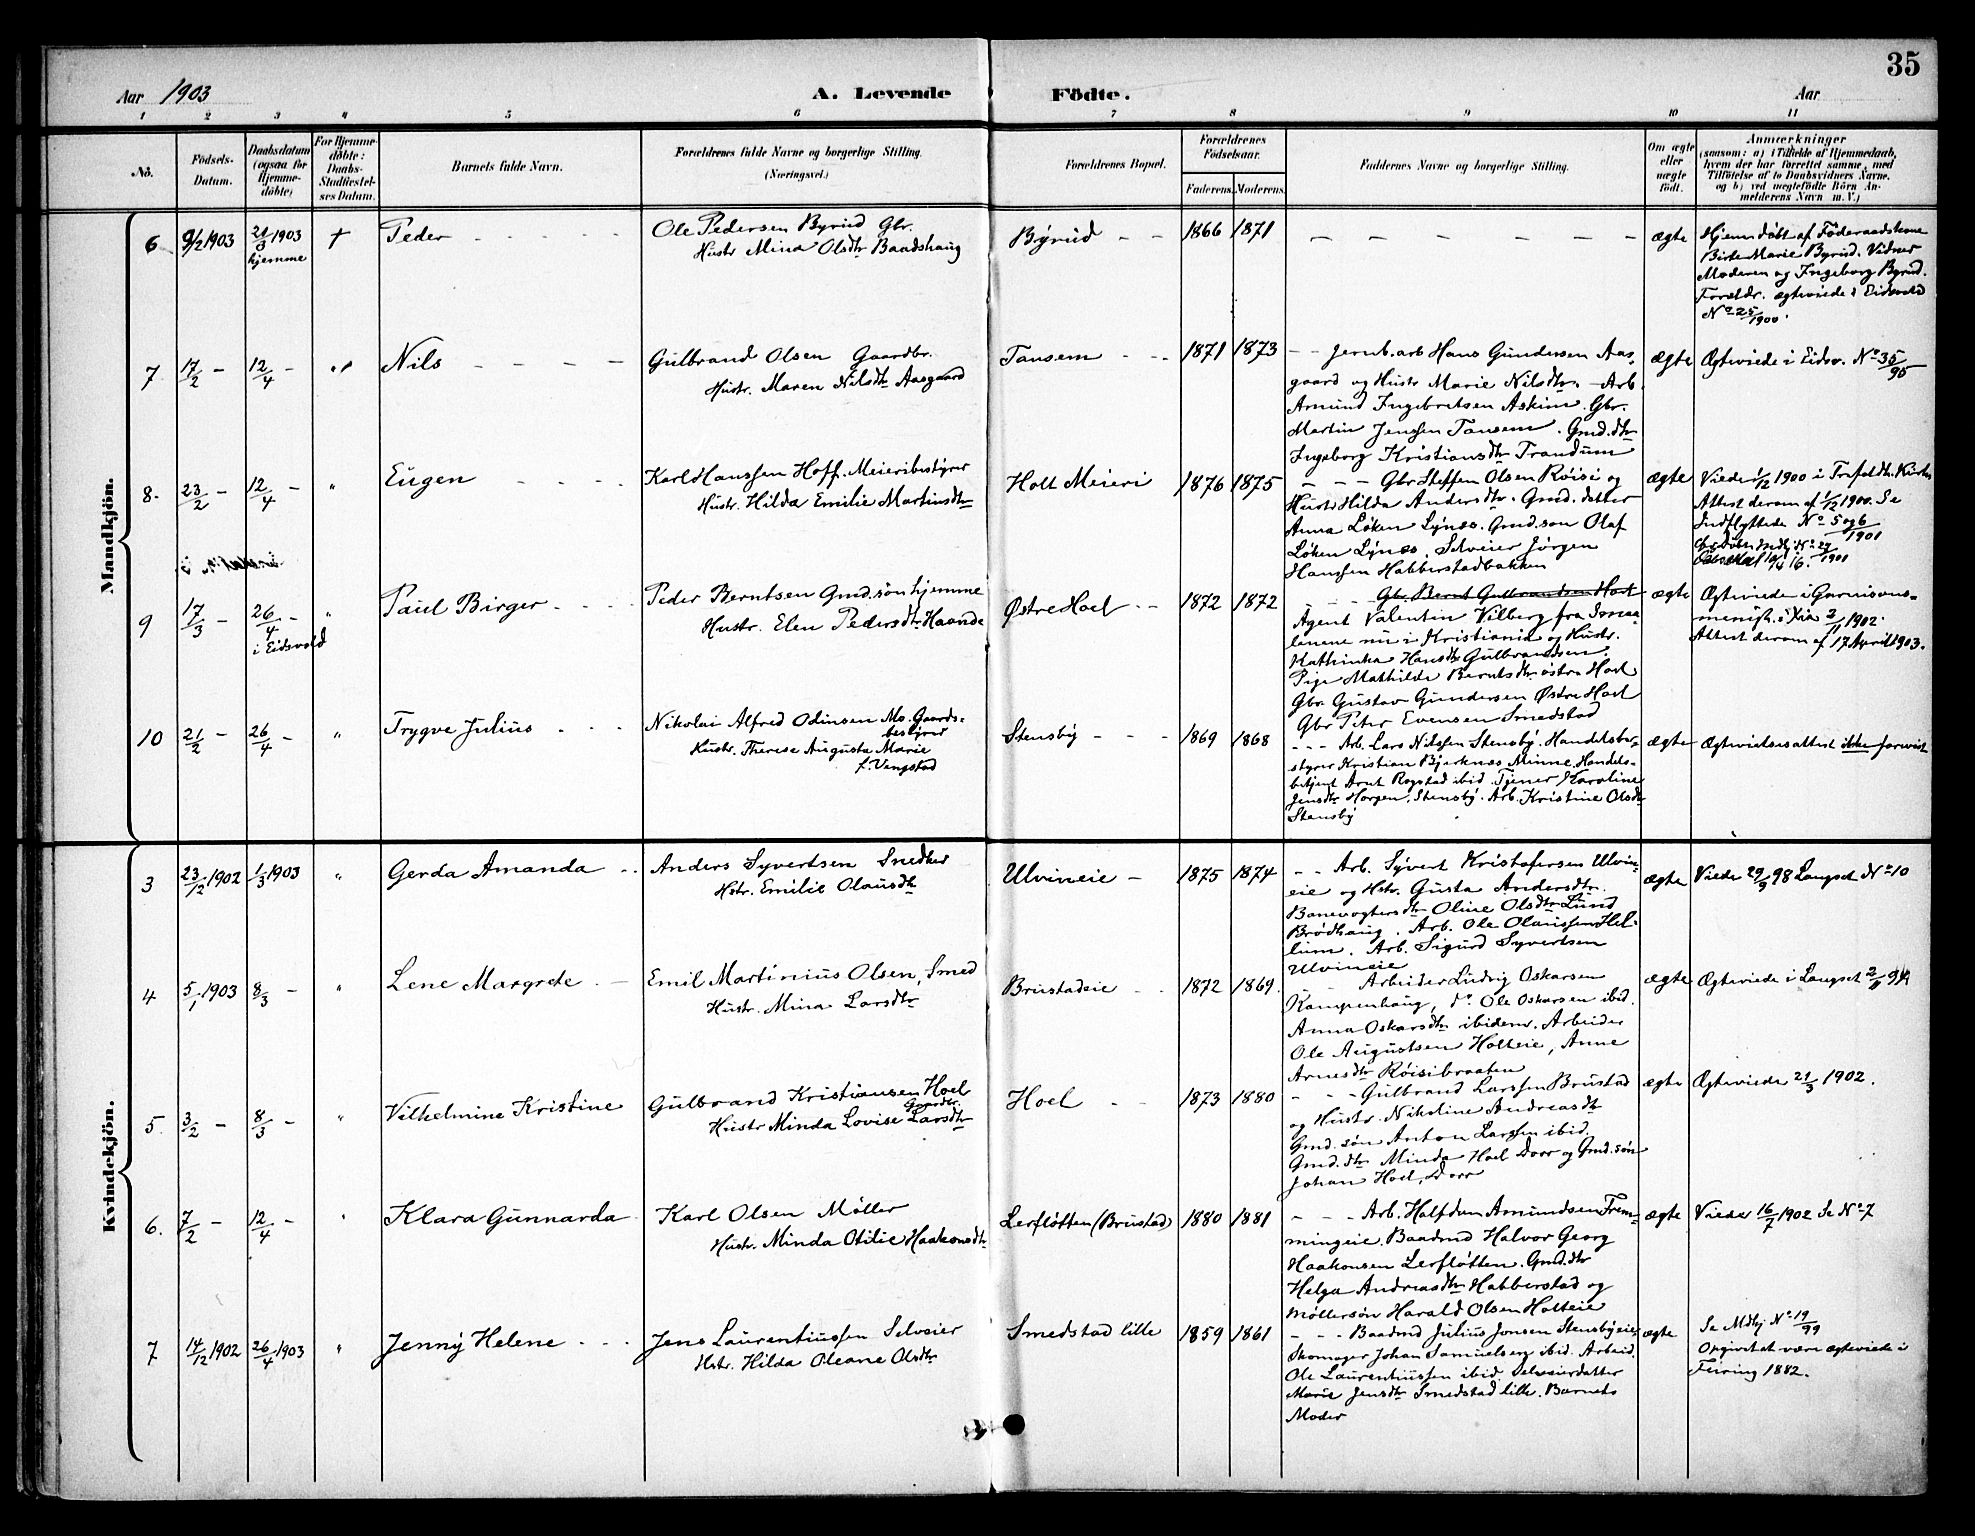 35
Aar 1903
A. Levende
Födte.
Aar
1 2 3 4 5 6 7 8 9 10 11
No.
Födsels-
Datum.
Daabsdatum
(ogsaa for
Hjemme-
döbte)
For Hjemme-
döbte:
Daabs-
Stadfæstel-
ses Datum.
Barnets fulde Navn.
Forældrenes fulde Navne og borgerlige Stilling.
(Næringsvei.)
Forældrenes Bopæl.
Forældrenes
Födselsaar.
Faderens. Moderens.
Faddernes Navne og borgerlige Stilling.
Om ægte
eller
uægte
födt.
Anmærkninger
(saasom: a) i Tilfælde af Hjemmedaab,
hvem der har forrettet samme, med
Tilföielse af to Daabsvidners Navne,
og b) ved uægtefödte Börn An-
melderens Navn m. V.)
Mandkjön.
6 9/2 1903 21/3 1903
hjemme
†
Peder
Ole Pedersen Byrud Gbr.
Hustr Mina Olsdtr Baadshaug
Byrud 1866 1871
ægte
Hjemdöbt af Föderaadskone
Birte Marie Byrud. Vidner
Moderen og Ingeborg Byrud.
Forældr. ægteviede i Eidsvold
No 25/1900.
7 17/2 – 12/4 – "
Nils
Gulbrand Olsen Gaardbr.
Hustr. Maren Nilsdtr Aasgaard
Tansem 1871 1873
– – Jernb.arb Hans Gundersen Aas-
gaard og Hustr Marie Nilsdtr. – Arb.
Amund Ingebretsen Askim. Gbr.
Martin Jenssen Tansem. Gmd.dtr
Ingeborg Kristiansdtr Trandum
ægte
Ægteviede i Eidsv. No 35/95
8. 23/2 – 12/4 – "
Eugen
Karl Hanssen Hoff. Meieribestyrer
Hustr. Hilda Emilie Martinsdtr
Holt Meieri 1876 1875
– – – Gbr Steffen Olsen Röisi og
Hustr Hilda Andersdtr. Gmd. datter
Anna Løken Lynæs. Gmd.søn Olaf
Løken Lynæs. Selveier Jörgen
Hanssen Habberstadbakken
ægte
Viede 1/12 1900 i Trefoldh. Kirke
Attest derom af 1/12 1900. Se
Indflyttede No 5 og 6/1901
9 17/3 – 26/4 – "
i Eidsvold
Paul Birger
Peder Berntsen Gmd.søn hjemme
Hustr. Elen Pedersdtr Haande
Østre Hoel 1872 1872
– – – Gbr. Bernt Gulbrandsen Hoel
Agent Valentin Vilberg fra Smaa-
lenene nu i Kristiania og Hustr.
Kathinka Hansdtr Gulbrandsen.
Pige Mathilde Berntsdtr østre Hoel
Gbr. Gustav Gundersen Østre Hoel
Gbr Peter Evensen Smedstad
ægte
Ægteviede i Garnisons-
menigh. i Kria 2/11 1902.
Attest derom af 17 April 1903.
10 21/2 – 26/4 – "
Trygve Julius
Nikolai Alfred Odinsen Mo. Gaards-
bestyrer
Hustr. Therese Augusta Marie
f. Vengstad
Stensby 1869 1868
– – – Arb. Lars Nilssen Stensby. Handelsbe-
styrer Kristian Bjerknæs Minne. Handels-
betjent Arnt Rogstad ibid. Tjener Karoline
Jensdtr Horgen, Stensby. Arb. Kristine Olsdtr
Stensby
ægte
Ægtevielsesattest ikke forevist
Kvindekjön.
3 23/12 1902 1/3 1903 "
Gerda Amanda
Anders Syvertsen Snedker
Hstr. Emilie Olausdtr
Ulvineie 1875 1874
– – Arb. Syvert Kristofersen Ulvin-
eie og Hstr. Gusta Andersdtr.
Banevogtersdtr Oline Olsdtr Lund
Brødhaug. Arb. Ole Olaussen Hel-
lum. Arb. Sigurd Syvertsen
Ulvineie
ægte
Viede 29/9 98 Langset No 10
4 5/1 1903 8/3 – "
Lene Margrete
Emil Martinius Olsen, Smed
Hustr. Mina Larsdtr
Brustadeie 1872 1869.
Arbeider Ludvig Oskarsen
Kampenhaug, do. Ole Oskarsen ibid.
Anna Oskarsdtr ibidem. Arbeider
Ole Augustsen Holteie, Anne
Arnesdtr Röisibraaten
ægte
Ægteviede i Langset 2/11 94
5. 3/2 – 8/3 – "
Vilhelmine Kristine
Gulbrand Kristiansen Hoel
Gaardbr.
Hustr Minda Lovise Larsdtr
Hoel 1873 1880
– – – Gulbrand Larssen Brustad
og Hustr. Nikoline Andreasdtr
Gmd. søn Anton Larssen ibid.
Gmd.dtr Minda Hoel Dorr og Gmd.søn
Johan Hoel, Dorr
ægte
Ægteviede 21/3 1902.
6. 7/2 – 12/4 –
Klara Gunnarda
Karl Olsen Møller
Hustr. Minda Otilie Haakonsdtr
Lerfløtten (Brustad) 1880 1881
– – – Arb. Halfdan Amundsen Frem-
mingeie. Baadmd Halvor Georg
Haakonsen Lerfløtten. Gmd.dtr
Helga Andreasdtr Habberstad og
Møllersøn Harald Olsen Holteie
ægte
Viede 16/7 1902 Se No 7
7 14/12 1902 26/4 1903 "
Jenny Helene
Jens Laurentiussen Selveier
Hstr. Hilda Oleane Olsdtr
Smedstad lille 1859 1861
– – – Baadmd Julius Jonsen Stensbyeie,
Skomager Johan Samuelsen ibid. Arbeid.
Ole Laurentiussen ibid. Selveierdatter
Marie Jensdtr Smedstad lille. Barnets
Moder
ægte
Se Mdbj No 19/99
Opgivet at være ægteviede i
Feiring 1882.